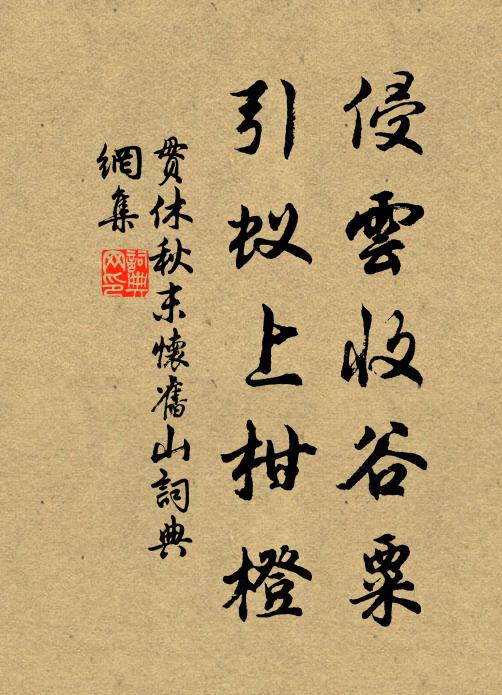 侵雲收谷粟
引蚁上柑橙
貫休秋末懷舊山詞典
網集
詞典
网印